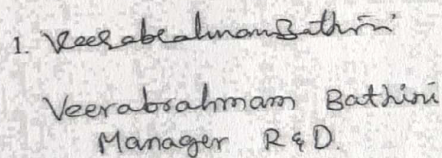 1. Veerabrahmam Bathini
Veerabrahmam Bathini
Manager R&D.